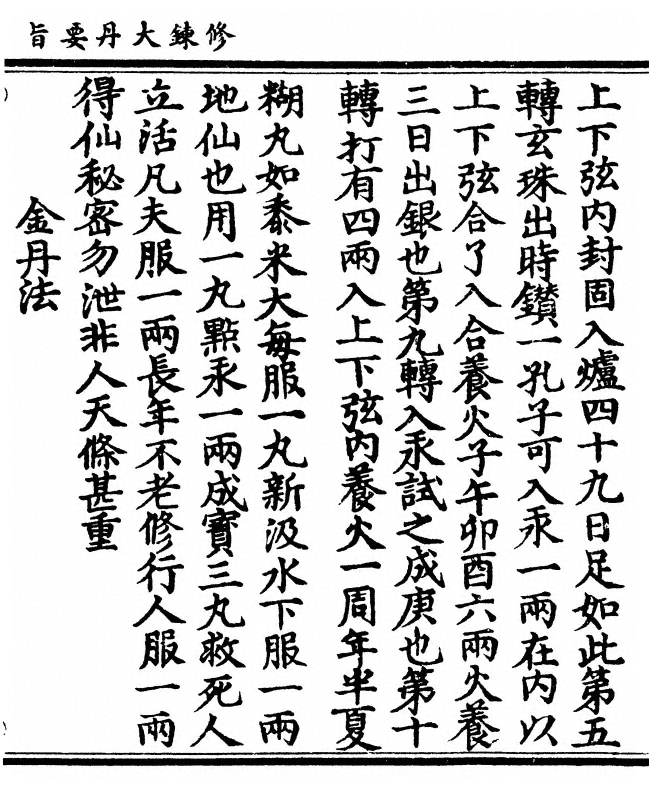 修鍊大丹要旨
上下弦內封固入爐四十九日足如此第五
轉玄珠出時鑚一孔子可入汞一兩在內以
上下弦合了入合養火子午卯酉六兩火養
三日出銀也第九轉入汞試之成庚也第十
轉打有四兩入上下弦內養火一周年半夏
糊丸如黍米大每服一丸新汲水下服一兩
地仙也用一丸點汞一兩成寶三丸救死人
立活凡夫服一兩長年不老修行人服一兩
得仙秘密勿泄非人天條甚重
金丹法